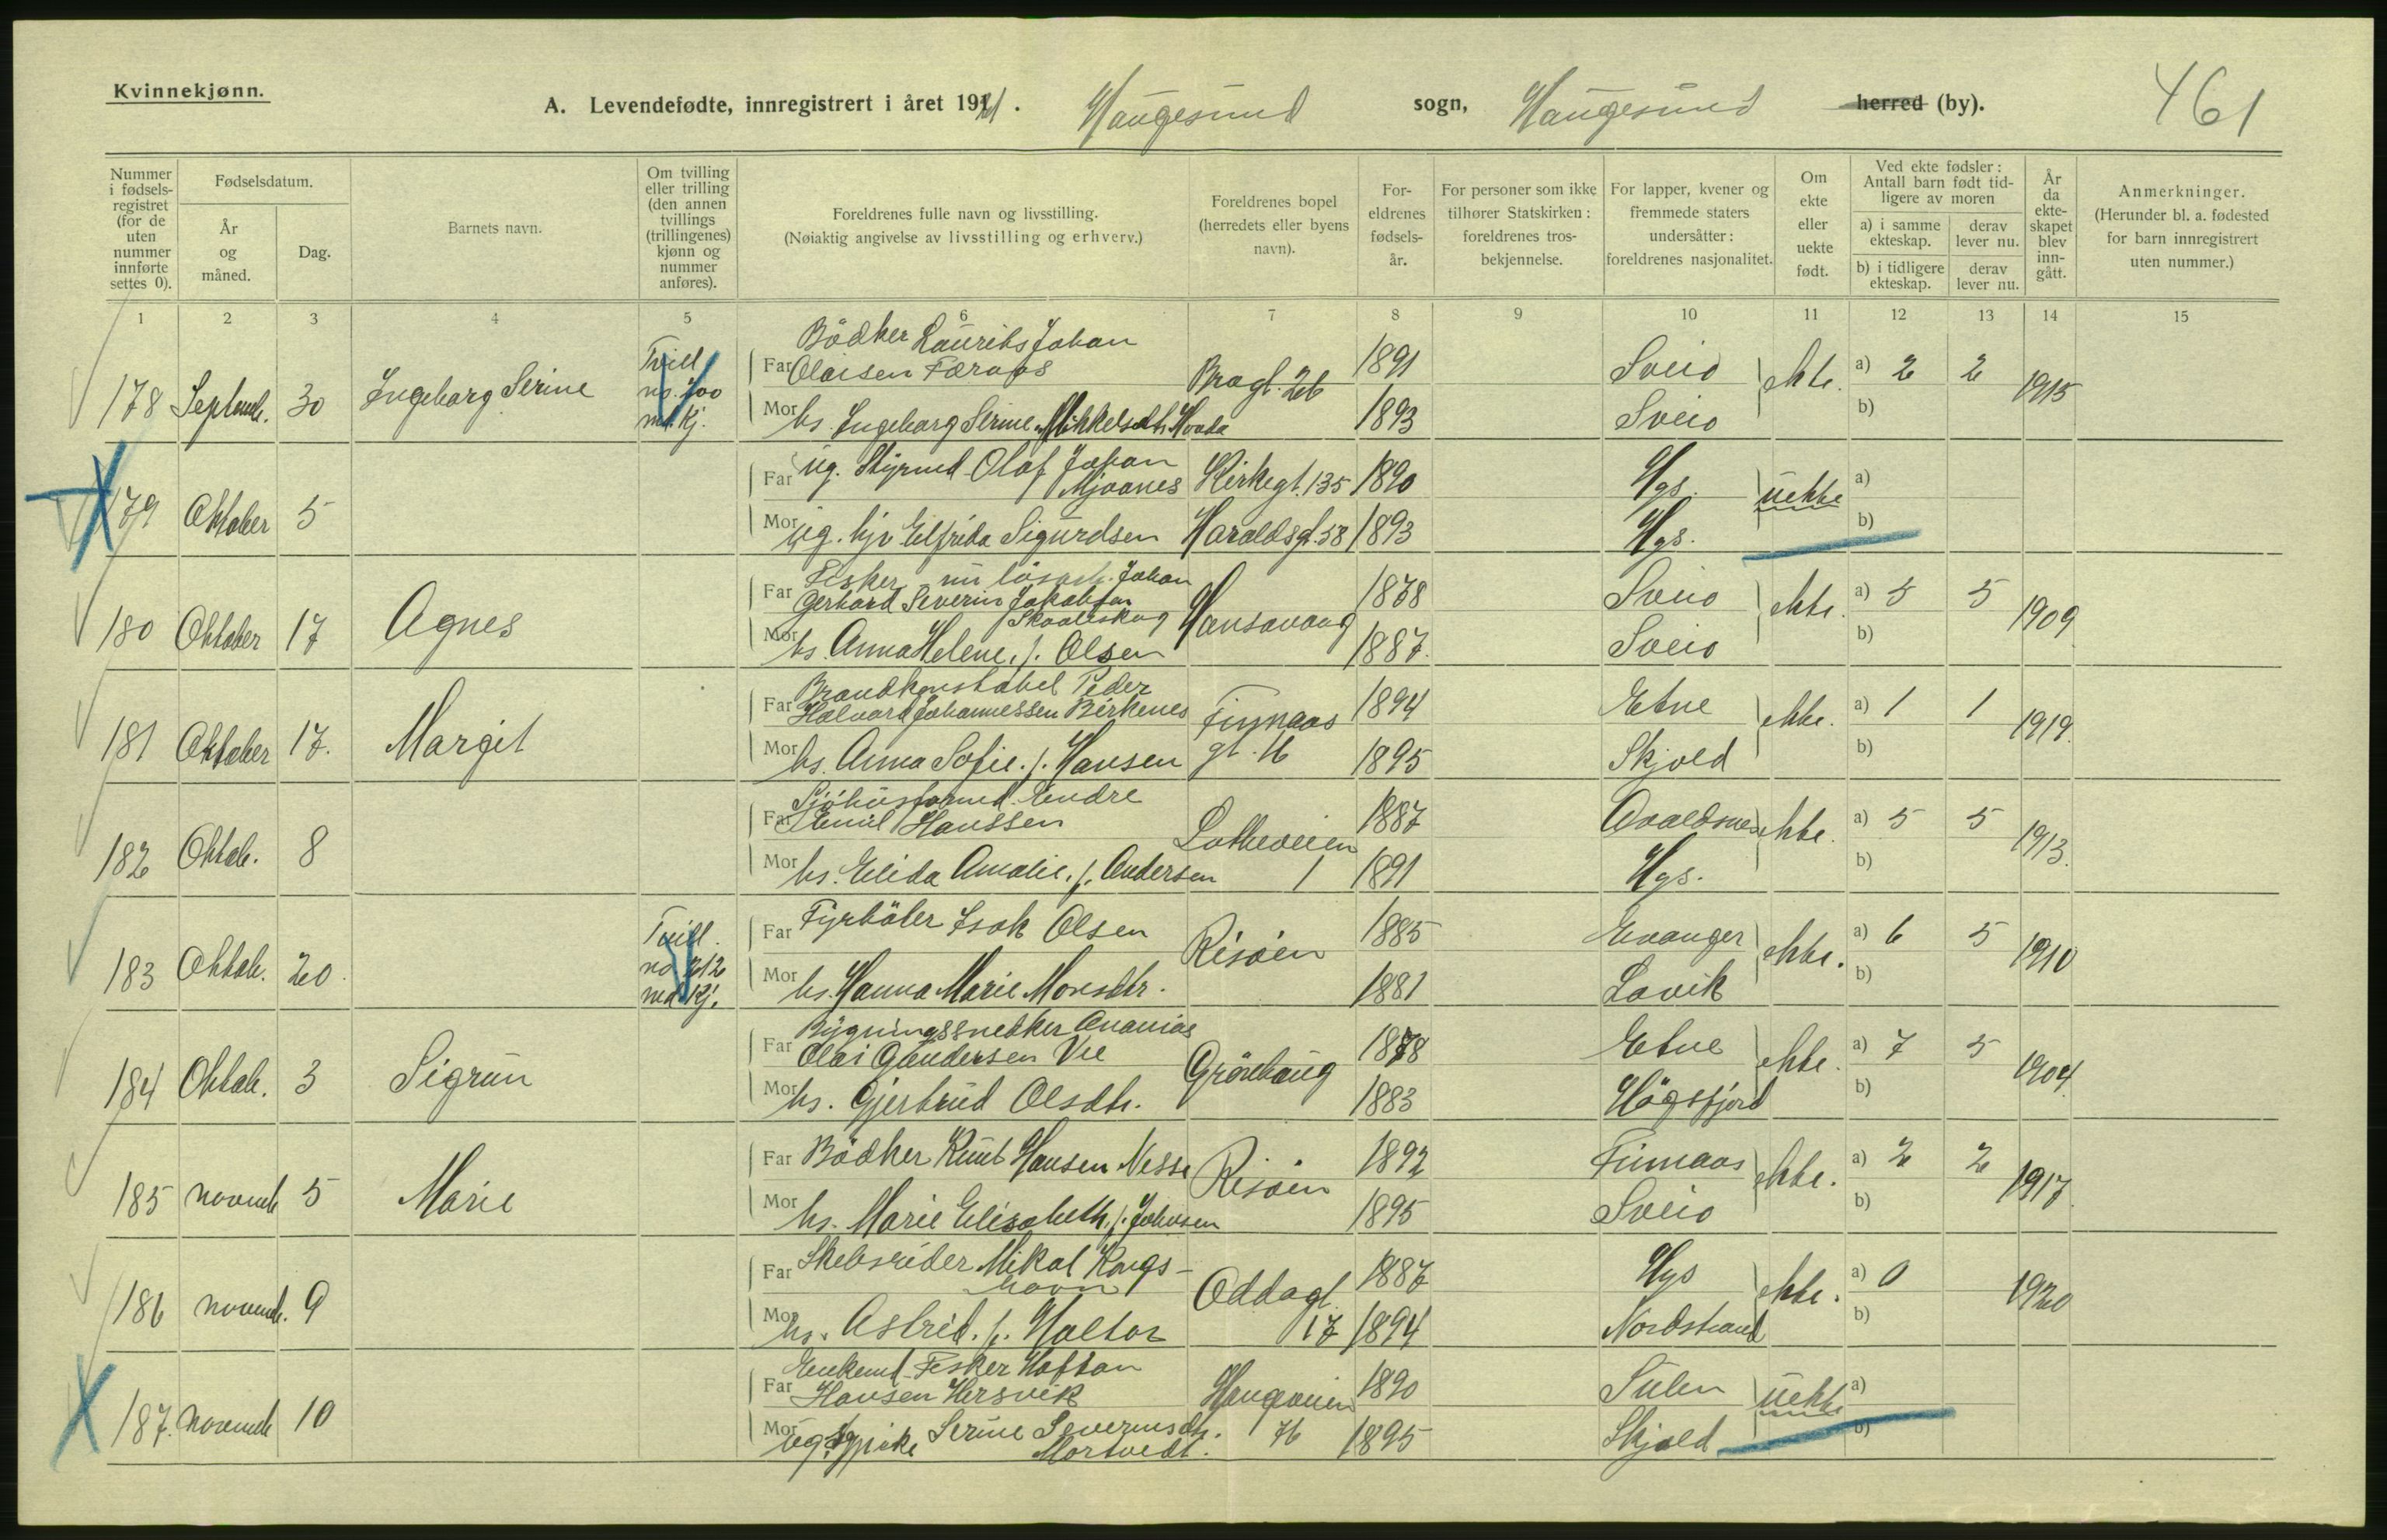 Kvinnekjønn.
A. Levendefødte, innregistrert i året 1921. Haugesund sogn, Haugesund herred (by). 461
Nummer i fødselsregistret (for de uten nummer innførte settes 0).
Fødselsdatum.
År og måned.
Dag.
Barnets navn.
Om tvilling eller trilling (den annen tvillings (trillingenes) kjønn og nummer anføres).
Foreldrenes fulle navn og livsstilling.
(Nøiaktig angivelse av livsstilling og erhverv.)
Foreldrenes bopel (herredets eller byens navn).
Foreldrenes fødselsår.
For personer som ikke tilhører Statskirken: foreldrenes trosbekjennelse.
For lapper, kvener og fremmede staters undersåtter: foreldrenes nasjonalitet.
Om ekte eller uekte født.
Ved ekte fødsler: Antall barn født tidligere av moren
a) i samme ekteskap.
derav lever nu.
b) i tidligere ekteskap.
derav lever nu.
År da ekteskapet blev inngått.
Anmerkninger.
(Herunder bl. a. fødested for barn innregistrert uten nummer.)
1 2 3 4 5 6 7 8 9 10 11 12 13 14 15
178 Septemb. 30 Ingeborg Serine Tvill no. 200 m. kj.
Far Bødker Laurits Johan Olaisen Færaas Bragt. 26 1891 Sveio ekte. a) 2 2 1915
Mor hs. Ingeborg Serine Mikkelsdtr Hovda 1893 Sveio b)
179 Oktober 5
Far ug. Styrmd Olaf Johan Mjaanes Kirkegt. 135 1890 Hgs. uekte a)
Mor ug. hjv Elfrida Sigurdsen Haraldsgt. 58 1893 Hgs. b)
180 Oktober 17 Agnes
Far Fisker nu løsarb. Johan Gerhard Severin Jakobsen Skaaleskog Hansavaag 1878 Sveio ekte. a) 5 5 1909
Mor hs. Anna Helene, f. Olsen 1887. Sveio b)
181 Oktober 17. Margit
Far Brandkonstabel Peder Halvard Johannessen Birkenes Finnaas gt. 16 1894 Etne ekte. a) 1 1 1919.
Mor hs. Anna Sofie. f. Hansen 1895 Skjold b)
182 Oktob. 8
Far Sjøhusformd. Endre Emil Hanssen Lotheveien 1 1887 Avaldsnes ekte. a) 5 5 1913.
Mor hs. Elida Amalie. f. Andersen 1891 Hgs. b)
183 Oktob. 20. Tvill. no 212 m. kj.
Far Fyrbøter Isak Olsen Risøen 1885 Evanger ekte. a) 6 5 1910
Mor hs. Hanna Marie Monsdtr. 1881 Lavik b)
184 Oktob. 3 Sigrun
Far Bygningssnedker Ananias Olai Gundersen Vee Grønhaug 1878 Etne ekte. a) 7 5 1904
Mor hs. Gjertrud Olsdtr. 1883 Høgsfjord b)
185 novemb 5 Marie
Far Bødker Knut Hansen Nesse Risøen 1892 Finnaas ekte. a) 2 2 1917
Mor hs. Marie Elisabeth, f. Johnsen 1895 Sveio b)
186 novemb. 9
Far Skibsreder Mikal Kongshavn Oddagt. 17 1887 Hgs ekte. a) 0 1920
Mor hs. Astrid. f. Haltor 1894 Nordstrand b)
187. novemb 10
Far Enkemd. Fisker Haftan Hansen Hersvik Haugeveien 76 1890 Sulen uekte a)
Mor ug. pike Serine Severinsdtr. Mortvedt. 1895 Skjold b)